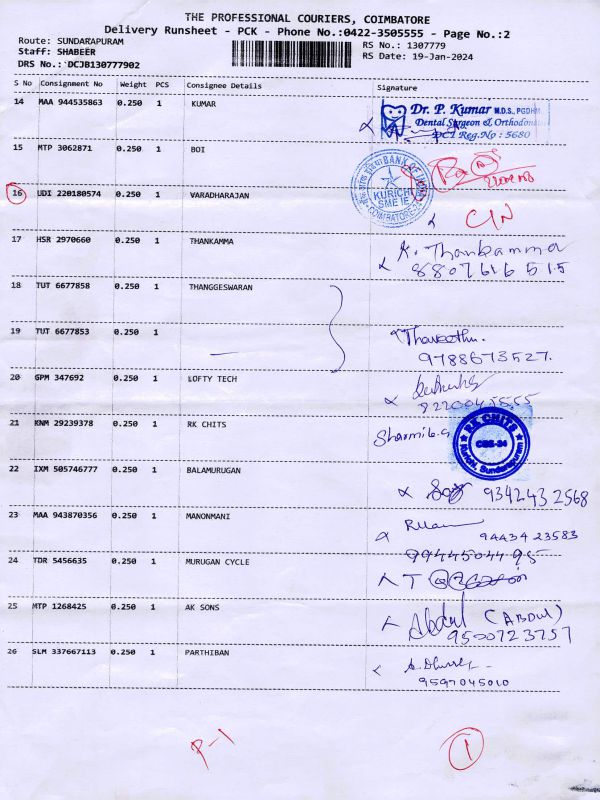 THE PROFESSIONAL COURIERS, COIMBATORE
Delivery Runsheet - PCK - Phone No.:0422-3505555 - Page No.:2
Route: SUNDARAPURAM
Staff: SHABEER
DRS No.: DCJB130777902
RS No.: 1307779
RS Date: 19-Jan-2024
S No Consignment No Weight PCS Consignee Details Signature
14 MAA 944535863 0.250 1 KUMAR
Dr. P. Kumar M.D.S., PGDHM
Dental Surgeon & Orthodontist
DCI Reg.No : 5680
15 MTP 3062871 0.250 1 BOI
BANK OF INDIA
KURICHI
SME IE
COIMBATORE
16 UDI 220180574 0.250 1 VARADHARAJAN
C/N
17 HSR 2970660 0.250 1 THANKAMMA
K. Thankamma
8807616515
18 TUT 6677858 0.250 1 THANGGESWARAN
19 TUT 6677853 0.250 1
9788673527.
20 GPM 347692 0.250 1 LOFTY TECH
21 KNM 29239378 0.250 1 RK CHITS
Sharmila.G
RK CHITS
CBE-24
Sundarapuram
22 IXM 505746777 0.250 1 BALAMURUGAN
9342432568
23 MAA 943870356 0.250 1 MANONMANI
94434 23583
24 TDR 5456635 0.250 1 MURUGAN CYCLE
9944504495
25 MTP 1268425 0.250 1 AK SONS
Abdul (ABDUL)
9500723757
26 SLM 337667113 0.250 1 PARTHIBAN
9597045010
P-1
1